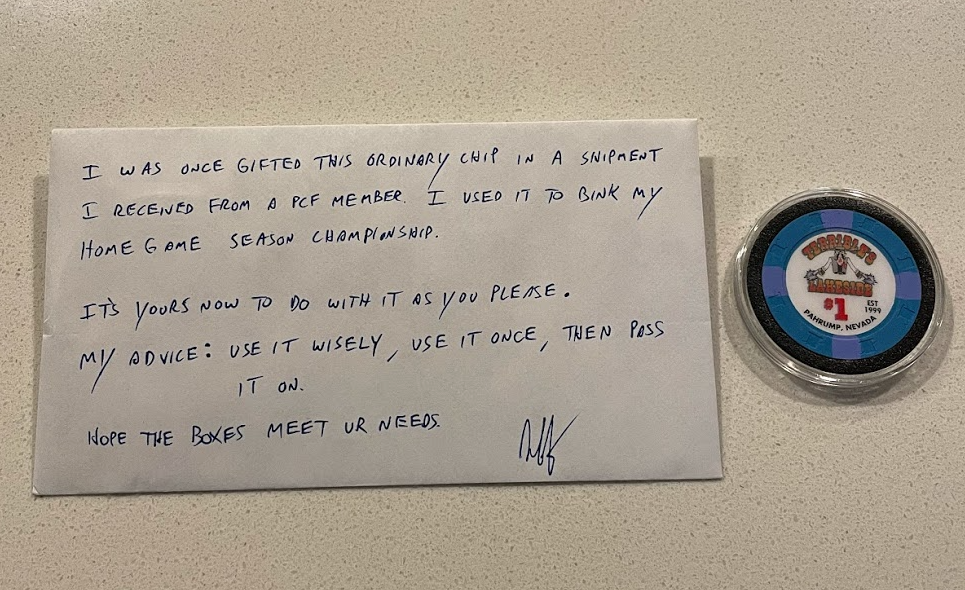 I WAS ONCE GIFTED THIS ORDINARY CHIP IN A SHIPMENT
I RECEIVED FROM A PCF MEMBER. I USED IT TO BINK MY
HOME GAME SEASON CHAMPIONSHIP.
IT'S YOURS NOW TO DO WITH IT AS YOU PLEASE.
MY ADVICE: USE IT WISELY, USE IT ONCE, THEN PASS
IT ON.
HOPE THE BOXES MEET UR NEEDS.
TERRIBLE'S
LAKESIDE
$1
EST
1999
PAHRUMP, NEVADA